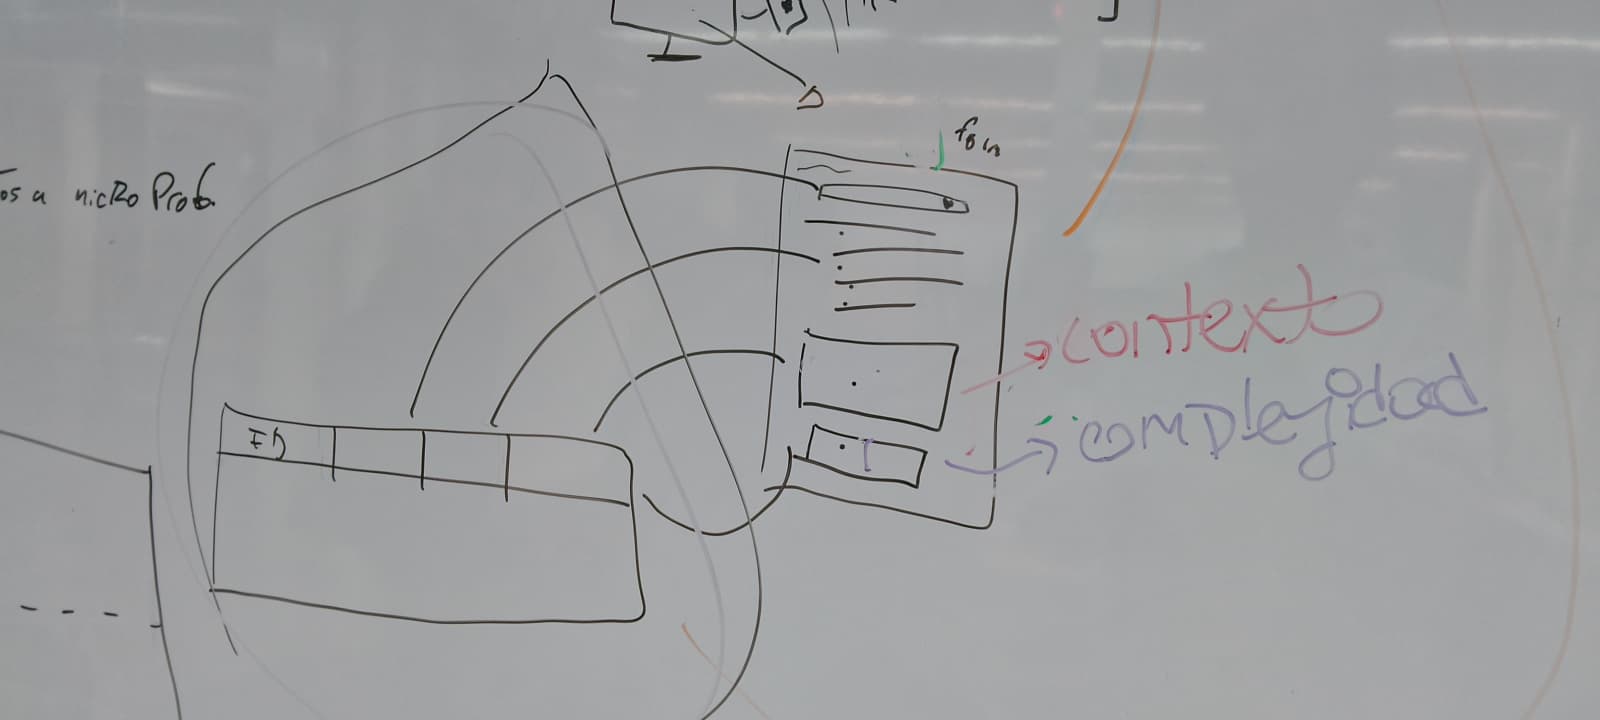 os a micro Prob.
context
complejidad
ID